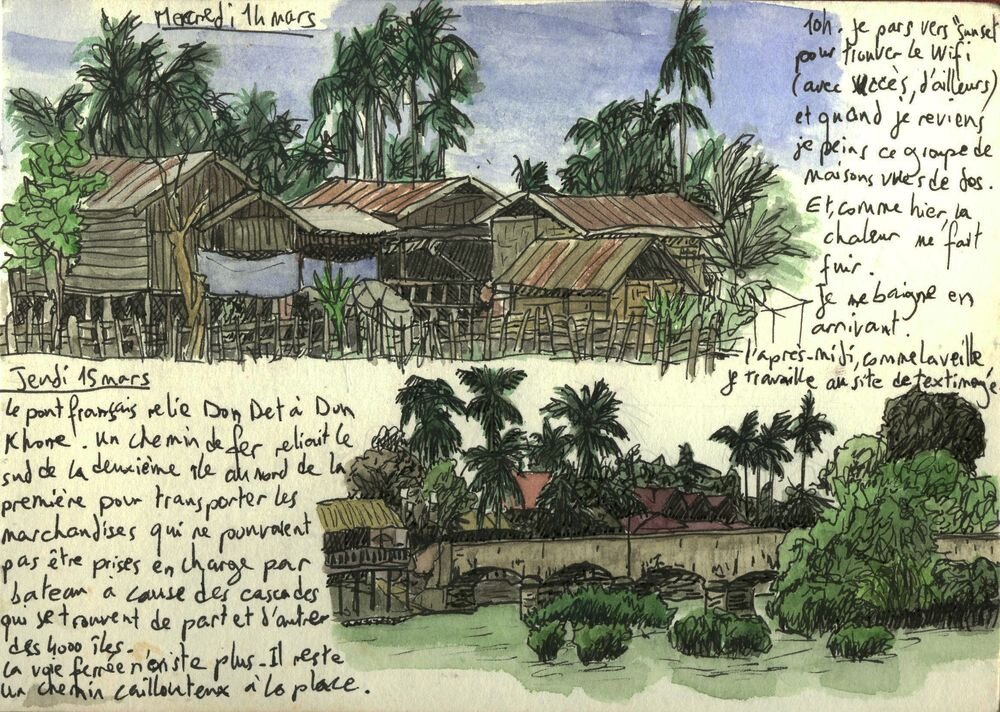 Mercredi 14 mars
10h. Je pars vers "sunset"
pour trouver le wifi
(avec succès, d'ailleurs)
et quand je reviens
je peins ce groupe de
maisons vues de dos.
Et, comme hier, la
chaleur me fait
fuir.
Je me baigne en
arrivant.
L'après-midi, comme la veille
je travaille au site de textimagé
Jeudi 15 mars
Le pont français relie Don Det à Don
Khone. Un chemin de fer reliait le
sud de la deuxième île au nord de la
première pour transporter les
marchandises qui ne pouvaient
pas être prises en charge par
bateau à cause des cascades
qui se trouvent de part et d'autre
des 4000 îles.
La voie ferrée n'existe plus. Il reste
un chemin caillouteux à la place.